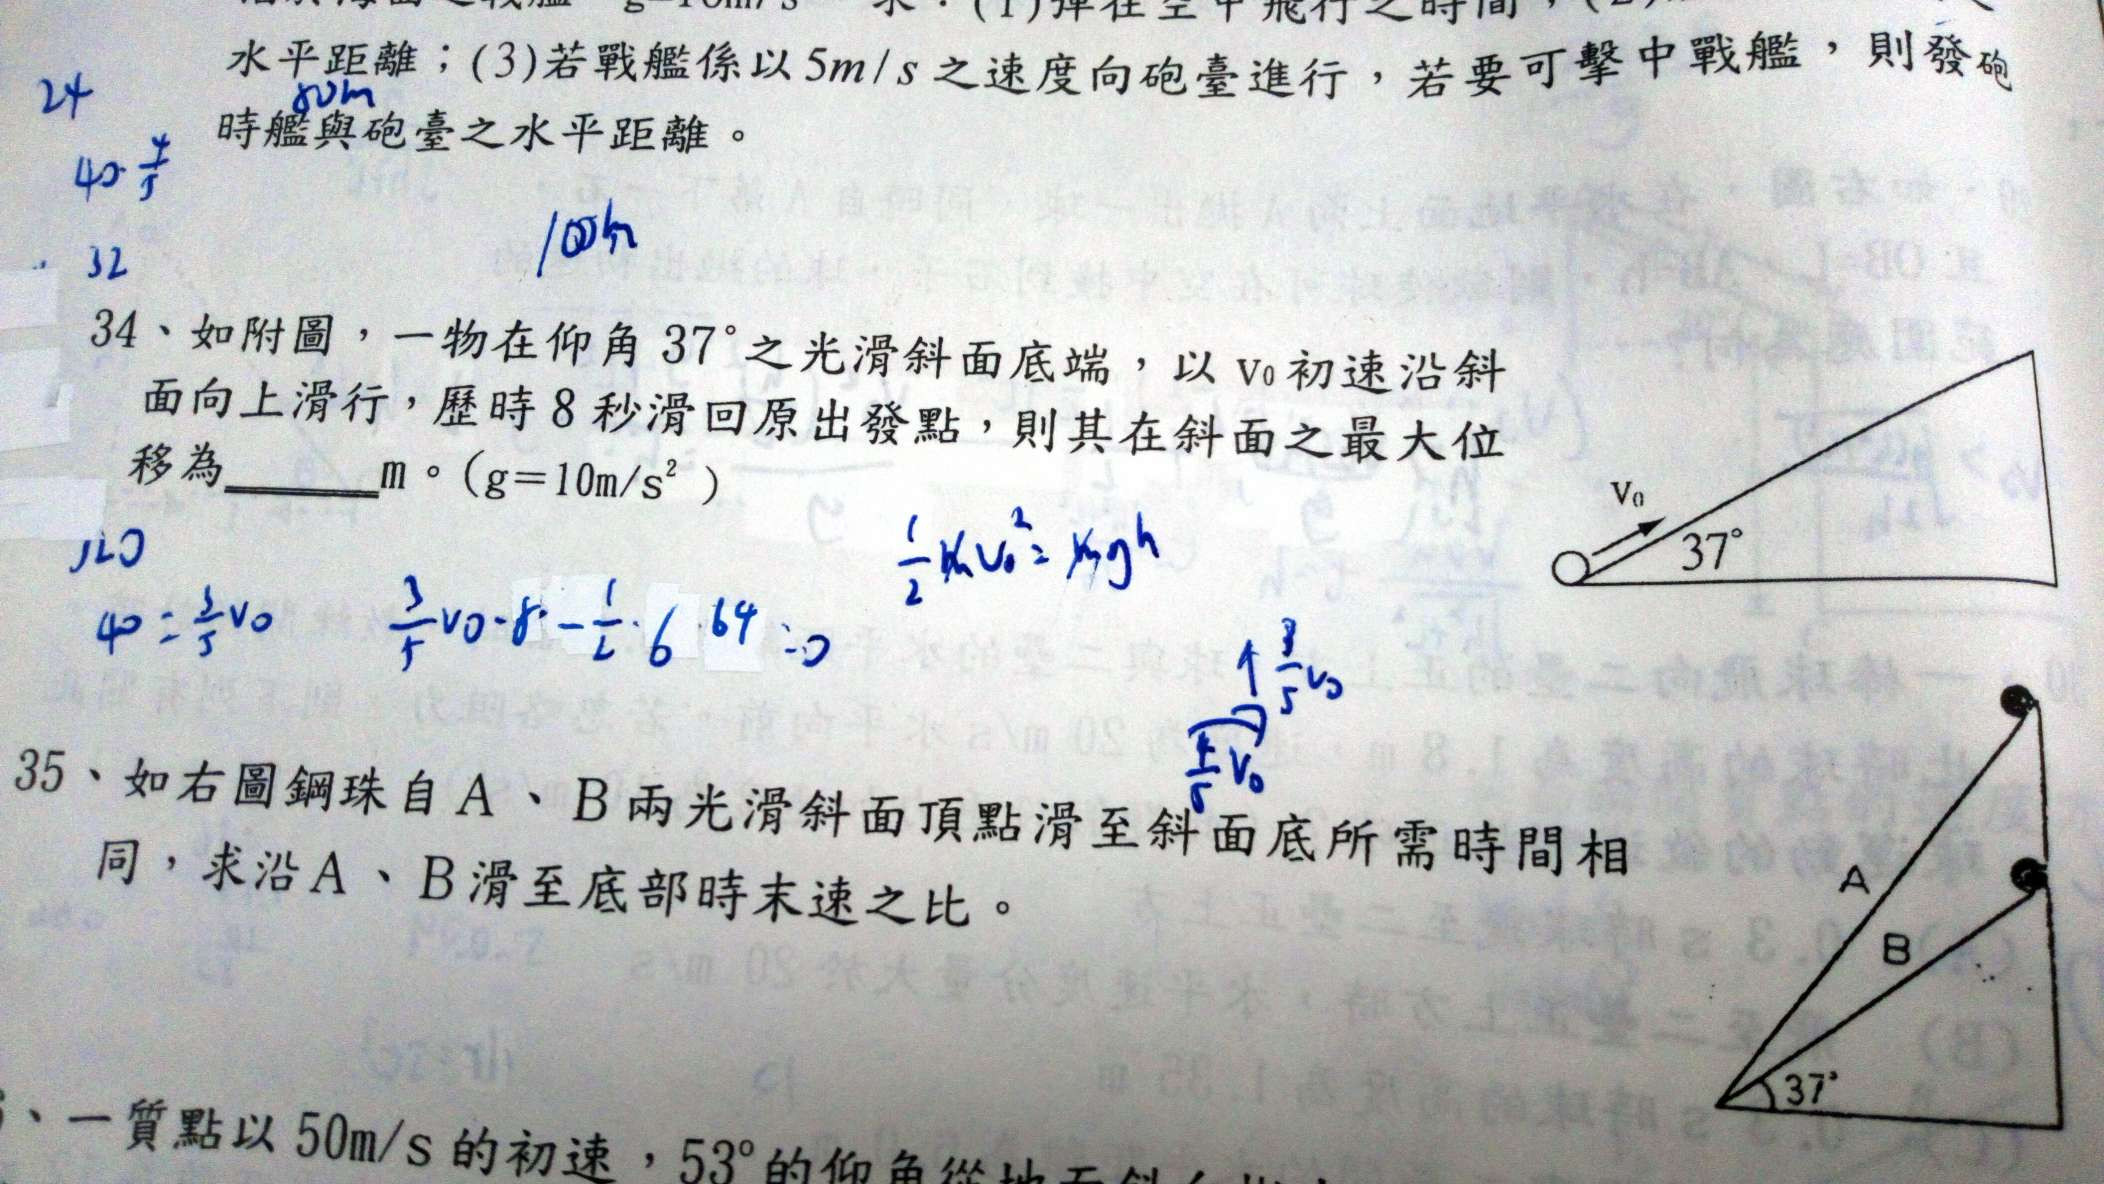 水平距離；(3)若戰艦係以5m/s之速度向砲臺進行，若要可擊中戰艦，則發砲
時艦與砲臺之水平距離。
80m
24
40·4/5
32
100m
34、如附圖，一物在仰角37°之光滑斜面底端，以v₀初速沿斜
面向上滑行，歷時8秒滑回原出發點，則其在斜面之最大位
移為______m。(g=10m/s²)
v₀
37°
120
40=3/5 v₀
3/5 v₀·8·-1/2·6·64=0
1/2 mv₀²=mgh
↑3/5 v₀
4/5 v₀
35、如右圖鋼珠自A、B兩光滑斜面頂點滑至斜面底所需時間相
同，求沿A、B滑至底部時末速之比。
A
B
37°
、一質點以50m/s的初速，53°的仰角從地面斜